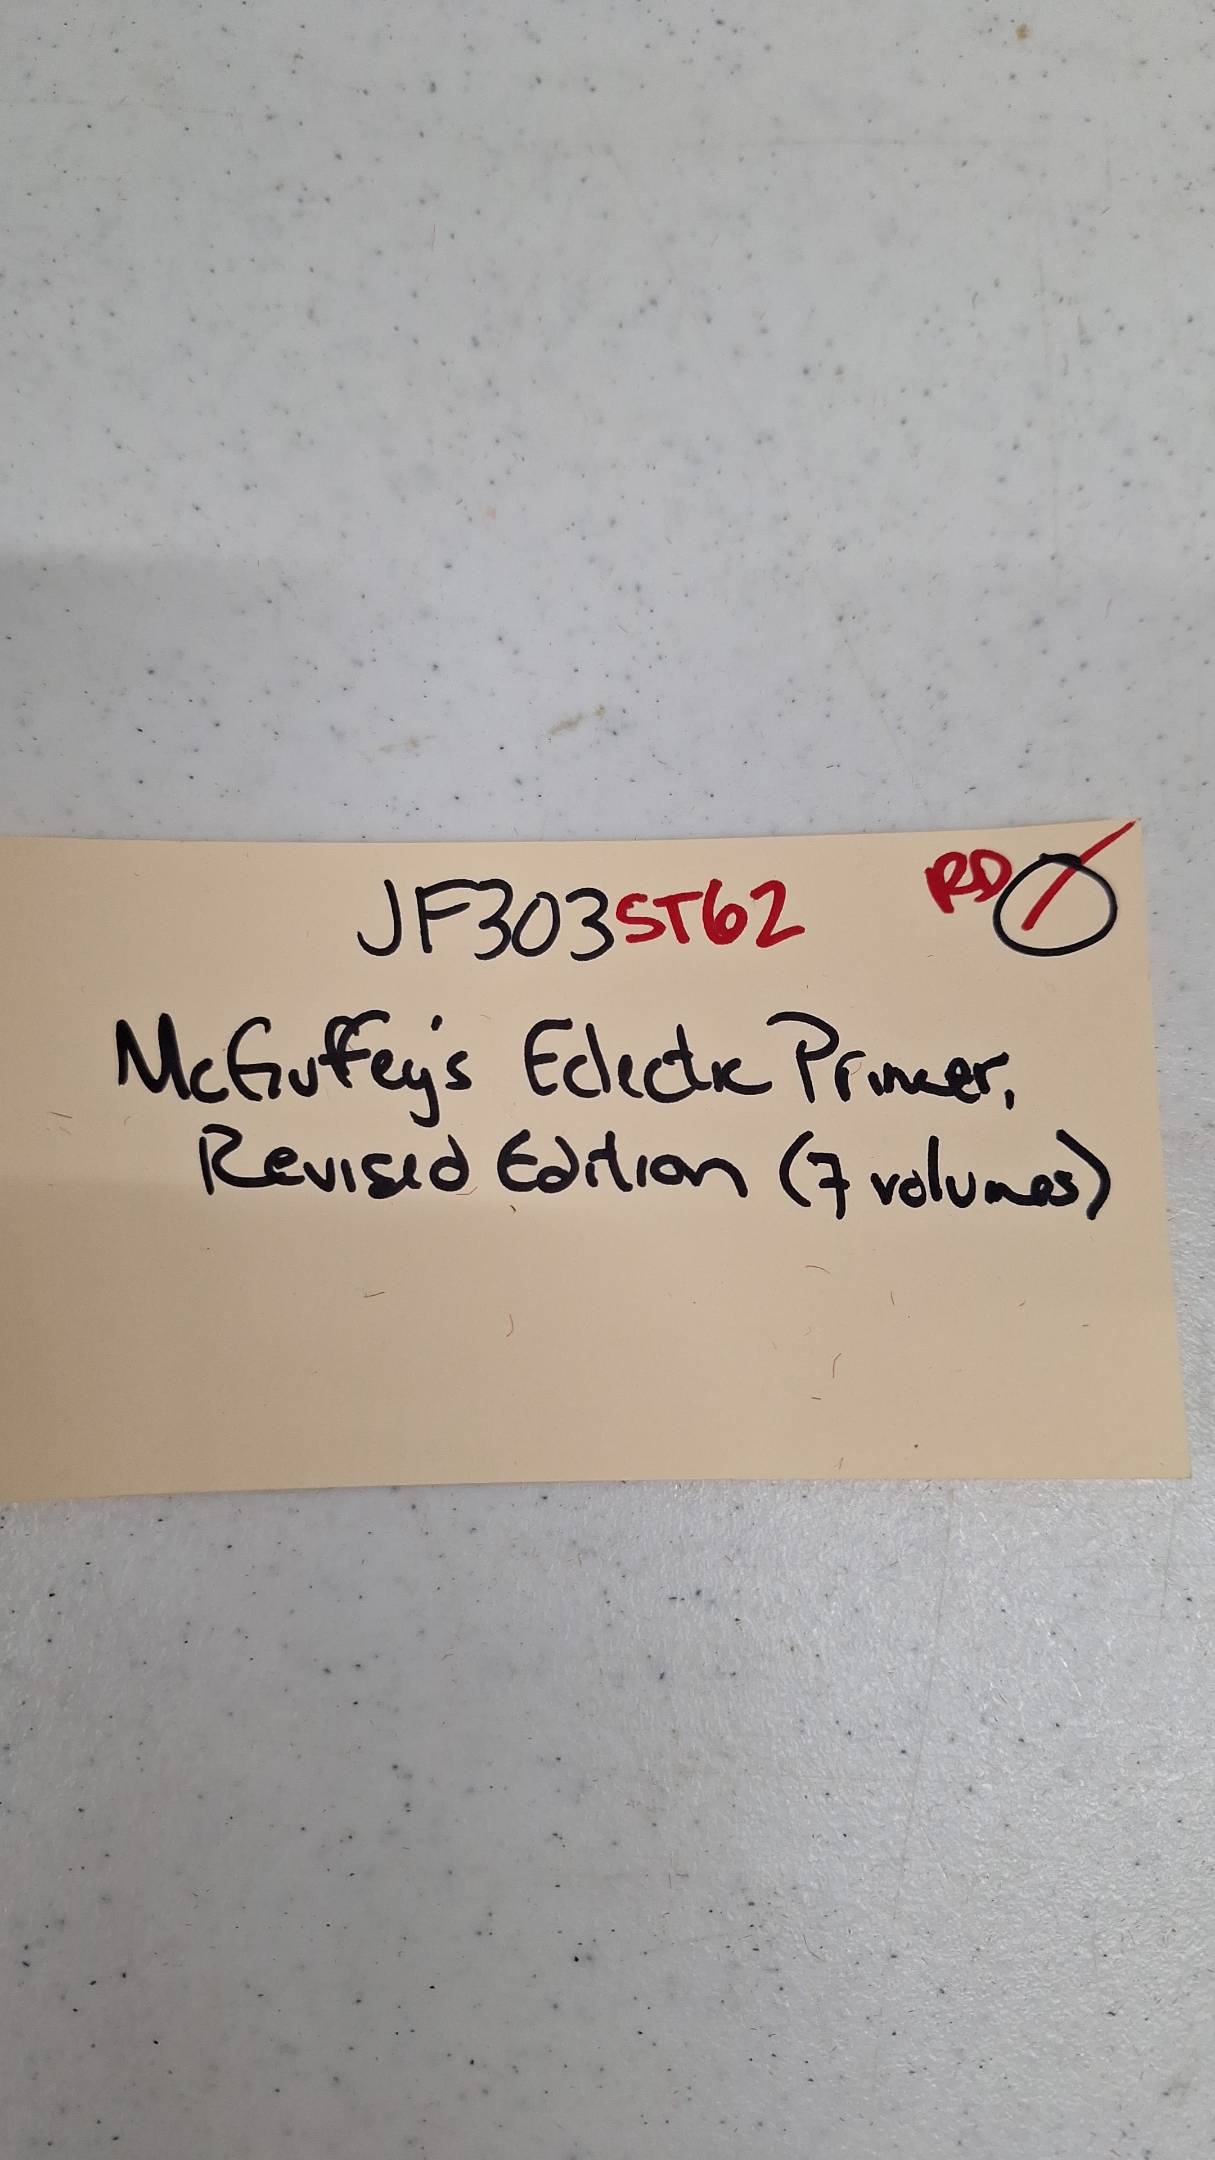 JF303ST62 RD
McGuffey's Eclectic Primer,
Revised Edition (7 volumes)